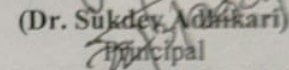 (Dr. Sukdev Adhikari)
Principal